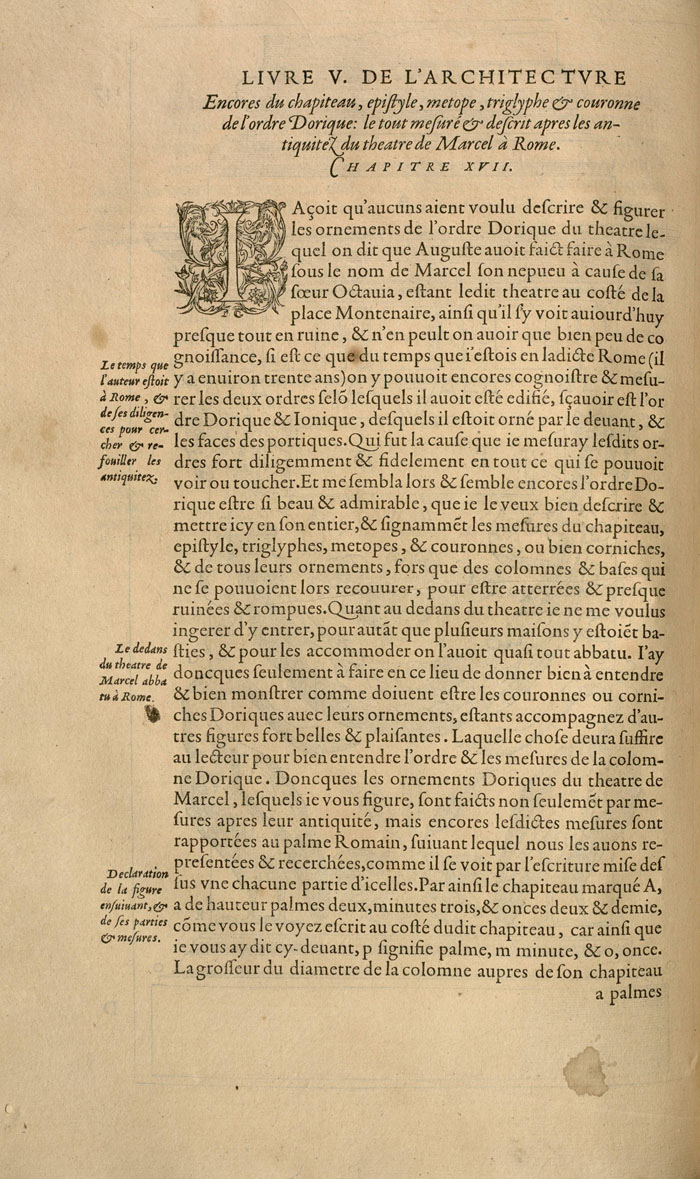 LIVRE V. DE L'ARCHITECTVRE
Encores du chapiteau, epiſtyle, metope, triglyphe & couronne
de l'ordre Dorique: le tout meſuré & deſcrit apres les an-
tiquitez du theatre de Marcel à Rome.
CHAPITRE XVII.
IAçoit qu'aucuns aient voulu deſcrire & figurer
les ornements de l'ordre Dorique du theatre le-
quel on dit que Auguſte auoit faict faire à Rome
ſous le nom de Marcel ſon nepueu à cauſe de ſa
ſœur Octauia, eſtant ledit theatre au coſté de la
place Montenaire, ainſi qu'il ſy voit auiourd'huy
preſque tout en ruine, & n'en peult on auoir que bien peu de co
gnoiſſance, ſi eſt ce que du temps que i'eſtois en ladicte Rome (il
y a enuiron trente ans) on y pouuoit encores cognoiſtre & meſu-
rer les deux ordres ſelõ leſquels il auoit eſté edifié, ſçauoir eſt l'or
dre Dorique & Ionique, deſquels il eſtoit orné par le deuant, &
les faces des portiques. Qui fut la cauſe que ie meſuray leſdits or-
dres fort diligemment & fidelement en tout ce qui ſe pouuoit
voir ou toucher. Et me ſembla lors & ſemble encores l'ordre Do-
rique eſtre ſi beau & admirable, que ie le veux bien deſcrire &
mettre icy en ſon entier, & ſignammẽt les meſures du chapiteau,
epiſtyle, triglyphes, metopes, & couronnes, ou bien corniches,
& de tous leurs ornements, fors que des colomnes & baſes qui
ne ſe pouuoient lors recouurer, pour eſtre atterrées & preſque
ruinées & rompues. Quant au dedans du theatre ie ne me voulus
ingerer d'y entrer, pour autãt que pluſieurs maiſons y eſtoiẽt ba-
ſties, & pour les accommoder on l'auoit quaſi tout abbatu. I'ay
doncques ſeulement à faire en ce lieu de donner bien à entendre
& bien monſtrer comme doiuent eſtre les couronnes ou corni-
ches Doriques auec leurs ornements, eſtants accompagnez d'au-
tres figures fort belles & plaiſantes. Laquelle choſe deura ſuffire
au lecteur pour bien entendre l'ordre & les meſures de la colom-
ne Dorique. Doncques les ornements Doriques du theatre de
Marcel, leſquels ie vous figure, ſont faicts non ſeulemẽt par me-
ſures apres leur antiquité, mais encores leſdictes meſures ſont
rapportées au palme Romain, ſuiuant lequel nous les auons re-
preſentées & recerchées, comme il ſe voit par l'eſcriture miſe deſ
ſus vne chacune partie d'icelles. Par ainſi le chapiteau marqué A,
a de hauteur palmes deux, minutes trois, & onces deux & demie,
cõme vous le voyez eſcrit au coſté dudit chapiteau, car ainſi que
ie vous ay dit cy-deuant, p ſignifie palme, m minute, & o, once.
La groſſeur du diametre de la colomne aupres de ſon chapiteau
a palmes
Le temps que
l'auteur eſtoit
à Rome, &
de ſes diligen-
ces pour cer-
cher & re-
fouiller les
antiquitez.
Le dedans
du theatre de
Marcel abba
tu à Rome.
Declaration
de la figure
enſuiuant, &
de ſes parties
& meſures.